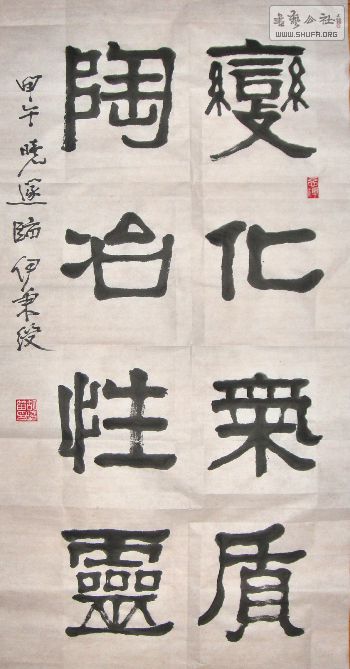 變化氣質
陶冶性靈
甲午曉邃師伊秉綬
書藝公社
WWW.SHUFA.ORG